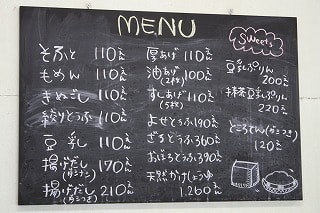 MENU
そふと 110えん
もめん 110えん
きぬごし 110えん
絞りとうふ 110えん
豆乳 110えん
揚げだし (タレナシ) 170えん
揚げだし (タレつき) 210えん
厚あげ 110えん
油あげ (2枚) 100えん
すしあげ (5枚) 110えん
よせとうふ 190えん
ざるとうふ 360えん
おぼろとうふ 390えん
天然かけしょうゆ
1,260えん
Sweets
豆乳ぷりん
200えん
抹茶豆乳ぷりん
220えん
ところてん (タレつき)
120えん